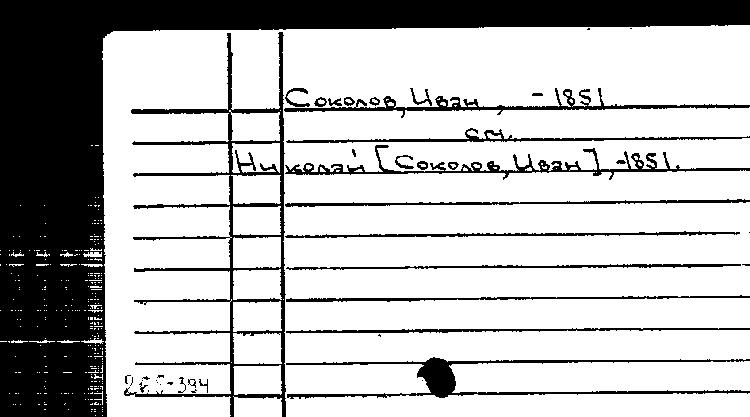 Соколов, Иван, -1851
см.
Николай [Соколов, Иван], -1851.